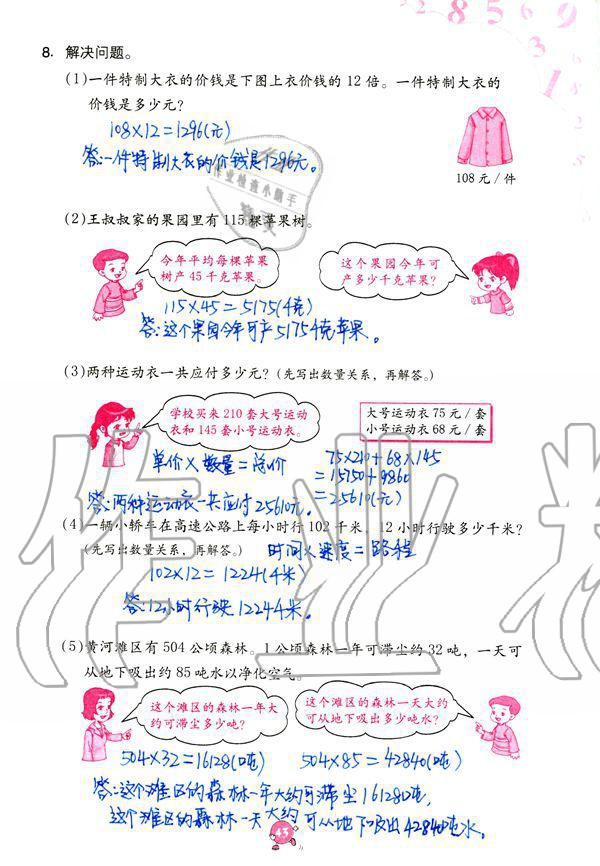 8. 解决问题。
(1)一件特制大衣的价钱是下图上衣价钱的 12 倍。一件特制大衣的
价钱是多少元?
108×12=1296(元)
答:一件特制大衣的价钱是1296元。
108 元/件
(2)王叔叔家的果园里有 115 棵苹果树。
今年平均每棵苹果
树产 45 千克苹果。
这个果园今年可
产多少千克苹果?
115×45=5175(千克)
答:这个果园今年可产5175千克苹果。
(3)两种运动衣一共应付多少元?(先写出数量关系,再解答。)
学校买来 210 套大号运动
衣和 145 套小号运动衣。
大号运动衣 75 元/套
小号运动衣 68 元/套
单价×数量=总价
75×210+68×145
=15750+9860
=25610(元)
答:两种运动衣一共应付25610元。
(4)一辆小轿车在高速公路上每小时行 102 千米,12 小时行驶多少千米?
(先写出数量关系,再解答。)
时间×速度=路程
102×12=1224(千米)
答:12小时行驶1224千米。
(5)黄河滩区有 504 公顷森林。1 公顷森林一年可滞尘约 32 吨,一天可
从地下吸出约 85 吨水以净化空气。
这个滩区的森林一年大
约可滞尘多少吨?
这个滩区的森林一天大约
可从地下吸出多少吨水?
504×32=16128(吨)
504×85=42840(吨)
答:这个滩区的森林一年大约可滞尘16128吨,
这个滩区的森林一天大约可从地下吸出42840吨水。
43
作业精灵